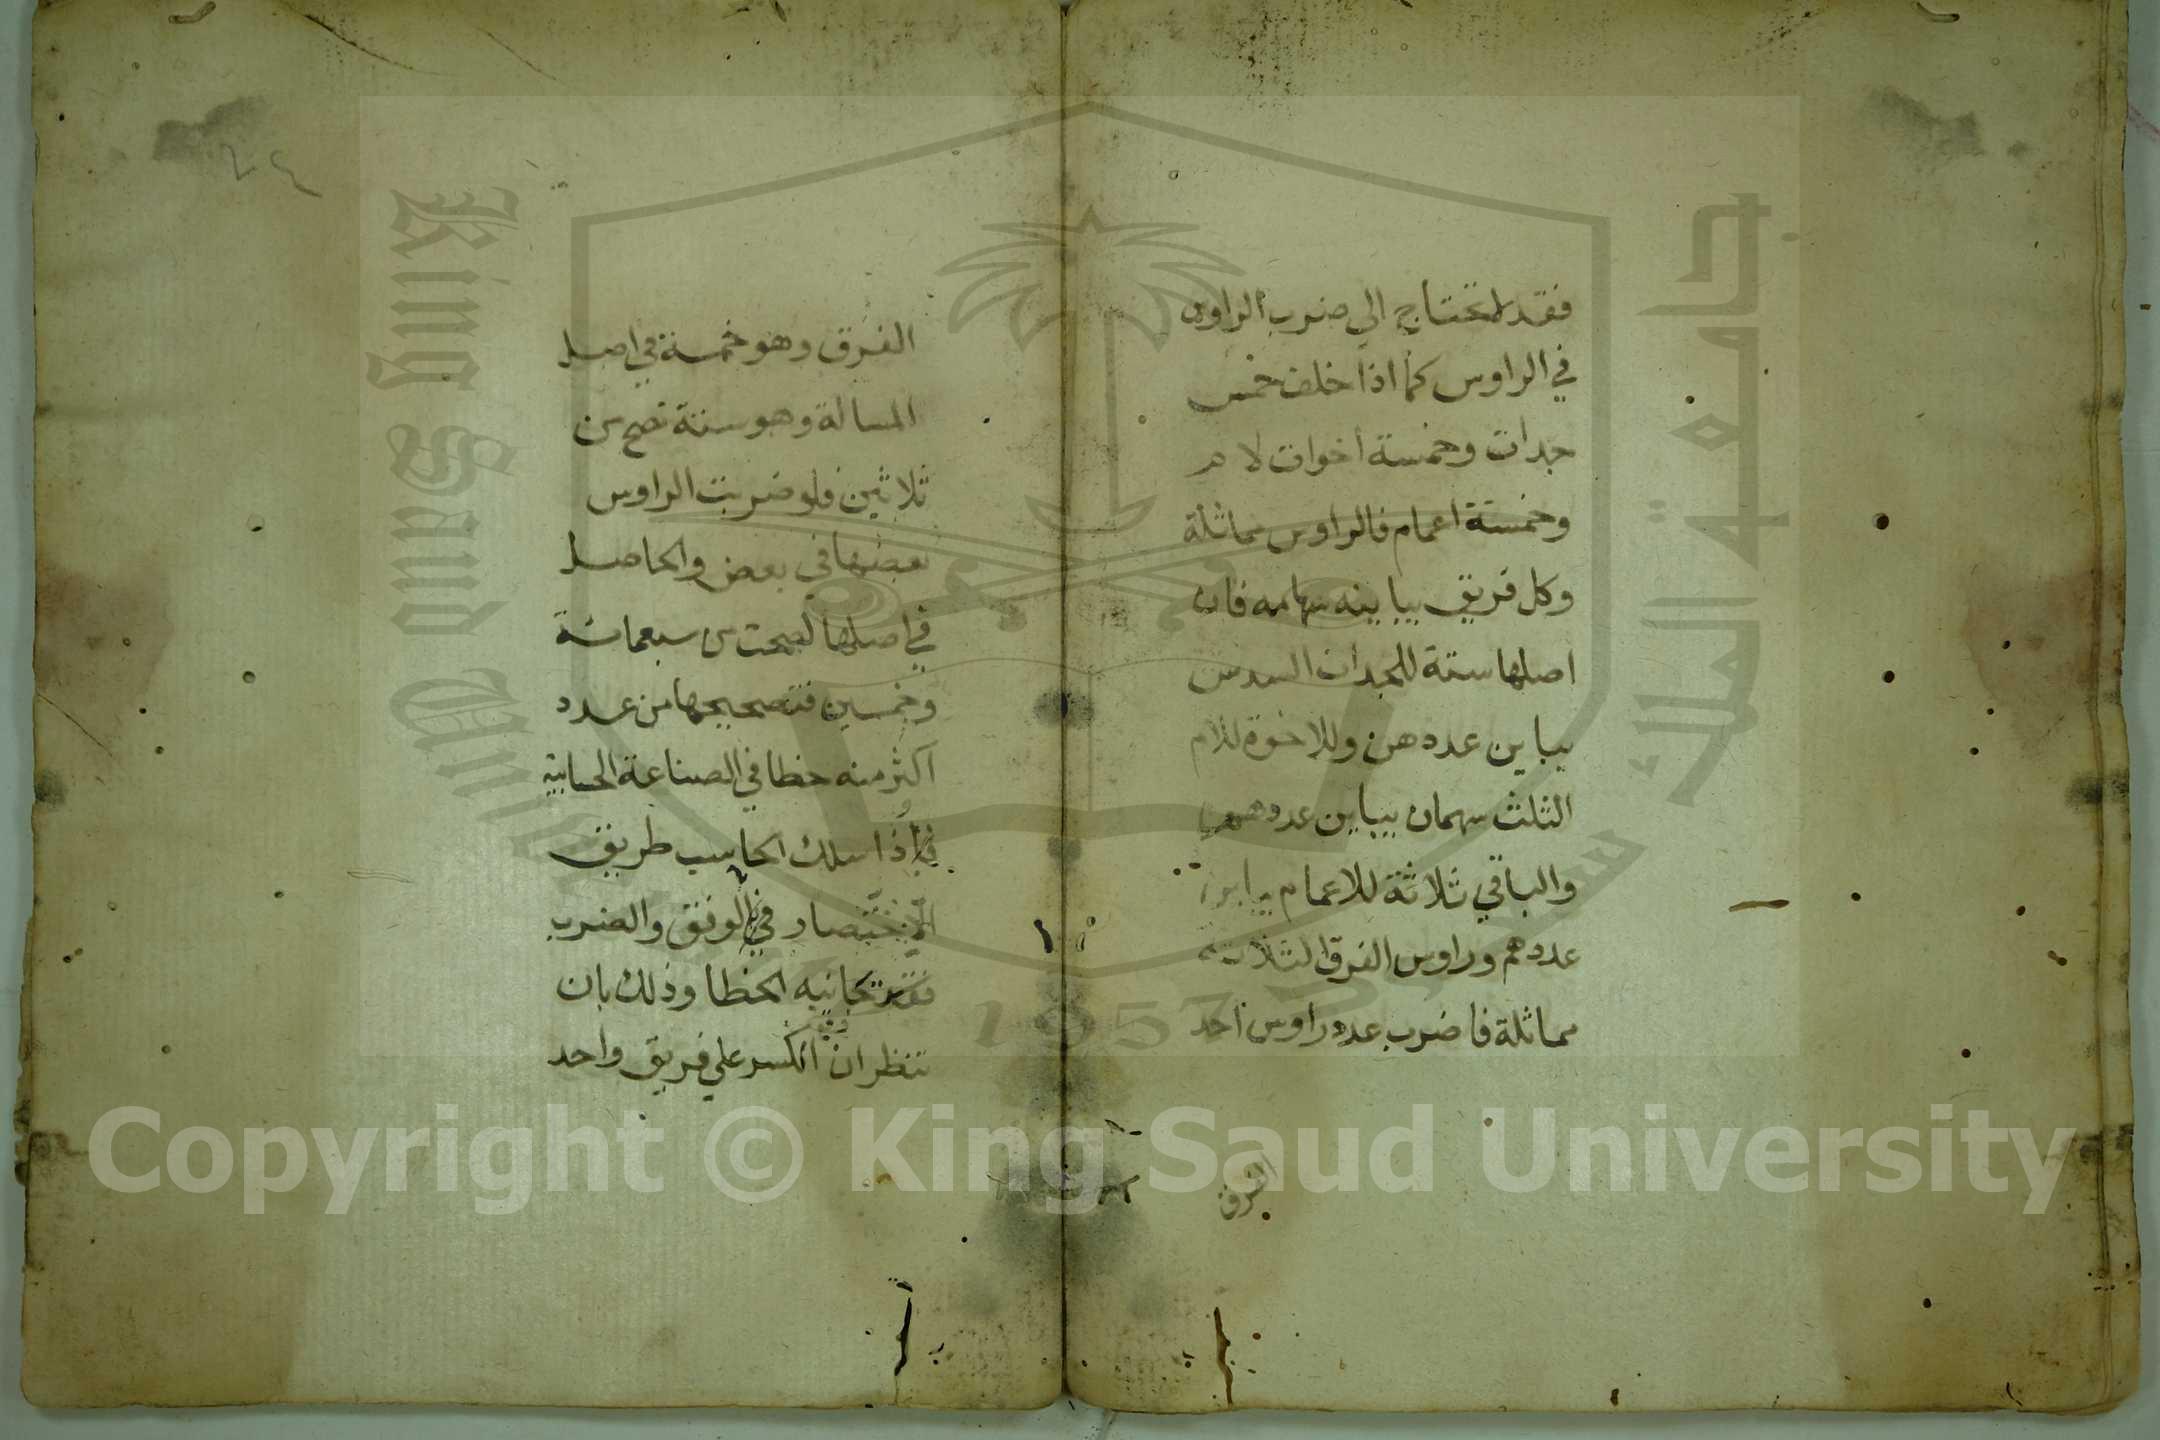 فقد لا تحتاج الي ضرب الراوس
في الراوس كما اذا خلف خمس
جدات وخمسة أخوات لام
وخمسة اعمام فالراوس مماثلة
وكل فريق يباينه سهامه فان
اصلها ستة للجدات السدس
يباين عددهن وللاخوة للام
الثلث سهمان يباين عددهم
والباقي ثلاثة للاعمام يباين
عددهم وراوس الفرق الثلاث
مماثلة فاضرب عدد راوس احد
الفرق
٧٤
الفرق وهو خمسة في اصل
المسالة وهو ستة تصح من
ثلاثين فلو ضربت الراوس
بعضها في بعض والحاصل
في اصلها لصحت من سبعمائة
وخمسين فتصحيحها من عدد
اكثر منه خطا في الصناعة الحسابية
فاذا سلك الحاسب طريق
الاختصار في الوفق والضرب
فقد تجانبه الخطا وذلك بان
تنظر ان انكسر علي فريق واحد
King Saud Uni
جامعة الملك سعود
1957
Copyright © King Saud University